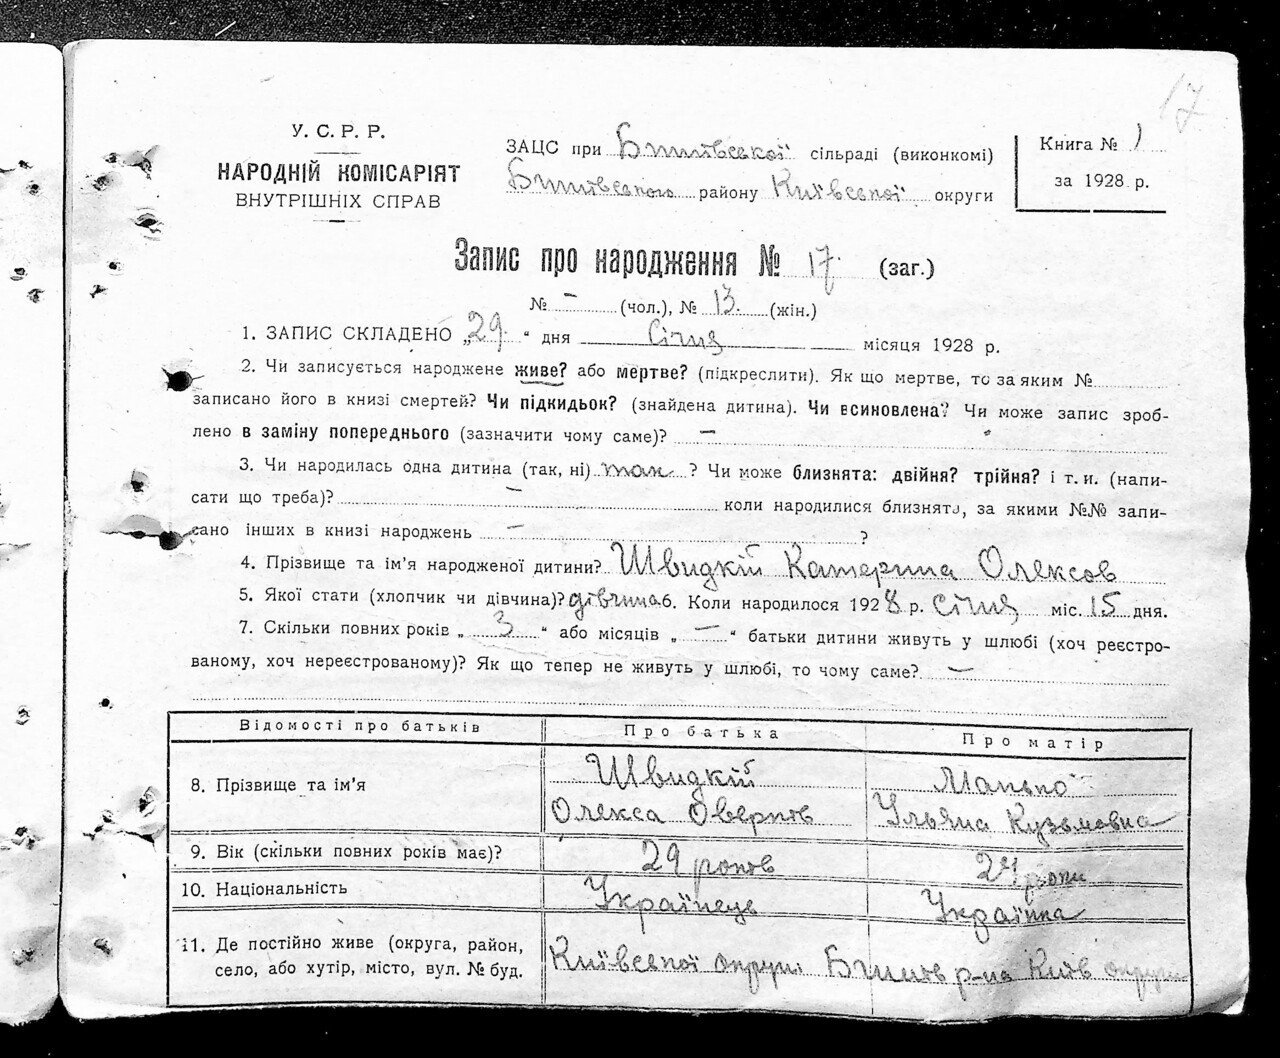 17
У. С. Р. Р.
НАРОДНІЙ КОМІСАРІЯТ
ВНУТРІШНІХ СПРАВ
ЗАЦС при Бишівської сільраді (виконкомі)
Бишівського району Київської округи
Книга № 1
за 1928 р.
Запис про народження № 17 (заг.)
№ – (чол.), № 13. (жін.)
1. ЗАПИС СКЛАДЕНО „29" дня Січня місяця 1928 р.
2. Чи записується народжене живе? або мертве? (підкреслити). Як що мертве, то за яким №
записано його в книзі смертей? Чи підкидьок? (знайдена дитина). Чи всиновлена? Чи може запис зроб-
лено в заміну попереднього (зазначити чому саме)? –
3. Чи народилась одна дитина (так, ні) так ? Чи може близнята: двійня? трійня? і т. и. (напи-
сати що треба)? – коли народилися близнята, за якими №№ запи-
сано інших в книзі народжень – ?
4. Прізвище та ім'я народженої дитини? Швидкій Катерина Олексов
5. Якої стати (хлопчик чи дівчина)? дівчина 6. Коли народилося 1928 р. січня міс. 15 дня.
7. Скільки повних років „ 3 " або місяців „ – " батьки дитини живуть у шлюбі (хоч реєстро-
ваному, хоч нереєстрованому)? Як що тепер не живуть у шлюбі, то чому саме? –
Відомості про батьків Про батька Про матір
8. Прізвище та ім'я Швидкій Манько
Олекса Оверков Ульяна Кузьмовна
9. Вік (скільки повних років має)? 29 років 24 роки
10. Національність Українець Українка
11. Де постійно живе (округа, район,
село, або хутір, місто, вул. № буд.
Київської округи Бишів р-на Київ округи